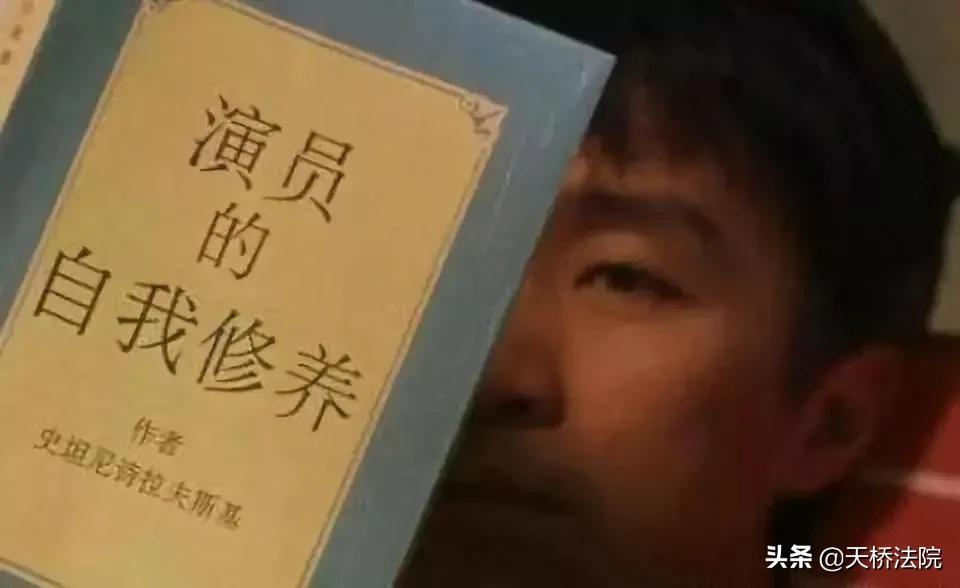 演员
的
自我修养
作者
史坦尼诗拉夫斯基
头条 @天桥法院